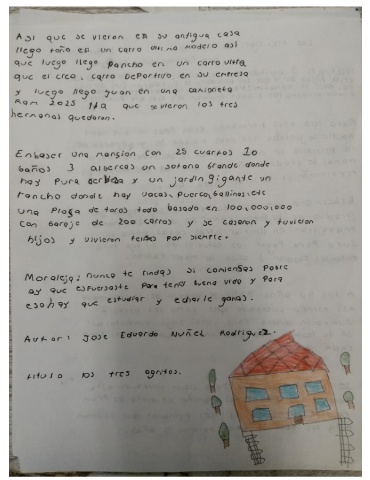 Asi que se vieron en su antigua casa
llego toño en un carro ultimo modelo asi
que luego llego Pancho en un carro ultra
que el creo, carro Deportivo en su empresa
y luego llego Juan en una camioneta
Ram 2025 que se vieron los tres
hermanos quedaron.
En baser una mansion con 25 cuartos 10
baños 3 albercas un sotano Grande donde
hay Pura y un jardin Gigante un
rancho donde hay vacas, Puerco, Gallinas, etc
una Plaga de toros todo basado en 100,000,000
con Garaje de 200 carros y se casaron y tuvieron
hijos y vivieron Por siempre.
Moraleja: nunca te rindas si comiensas Pobre
ay que esfuersaste Para tener buena vida y Para
eso hay que estudiar y echarle ganas.
Autor: Jose Eduardo Nuñez Rodriguez.
titulo los tres ogritos.